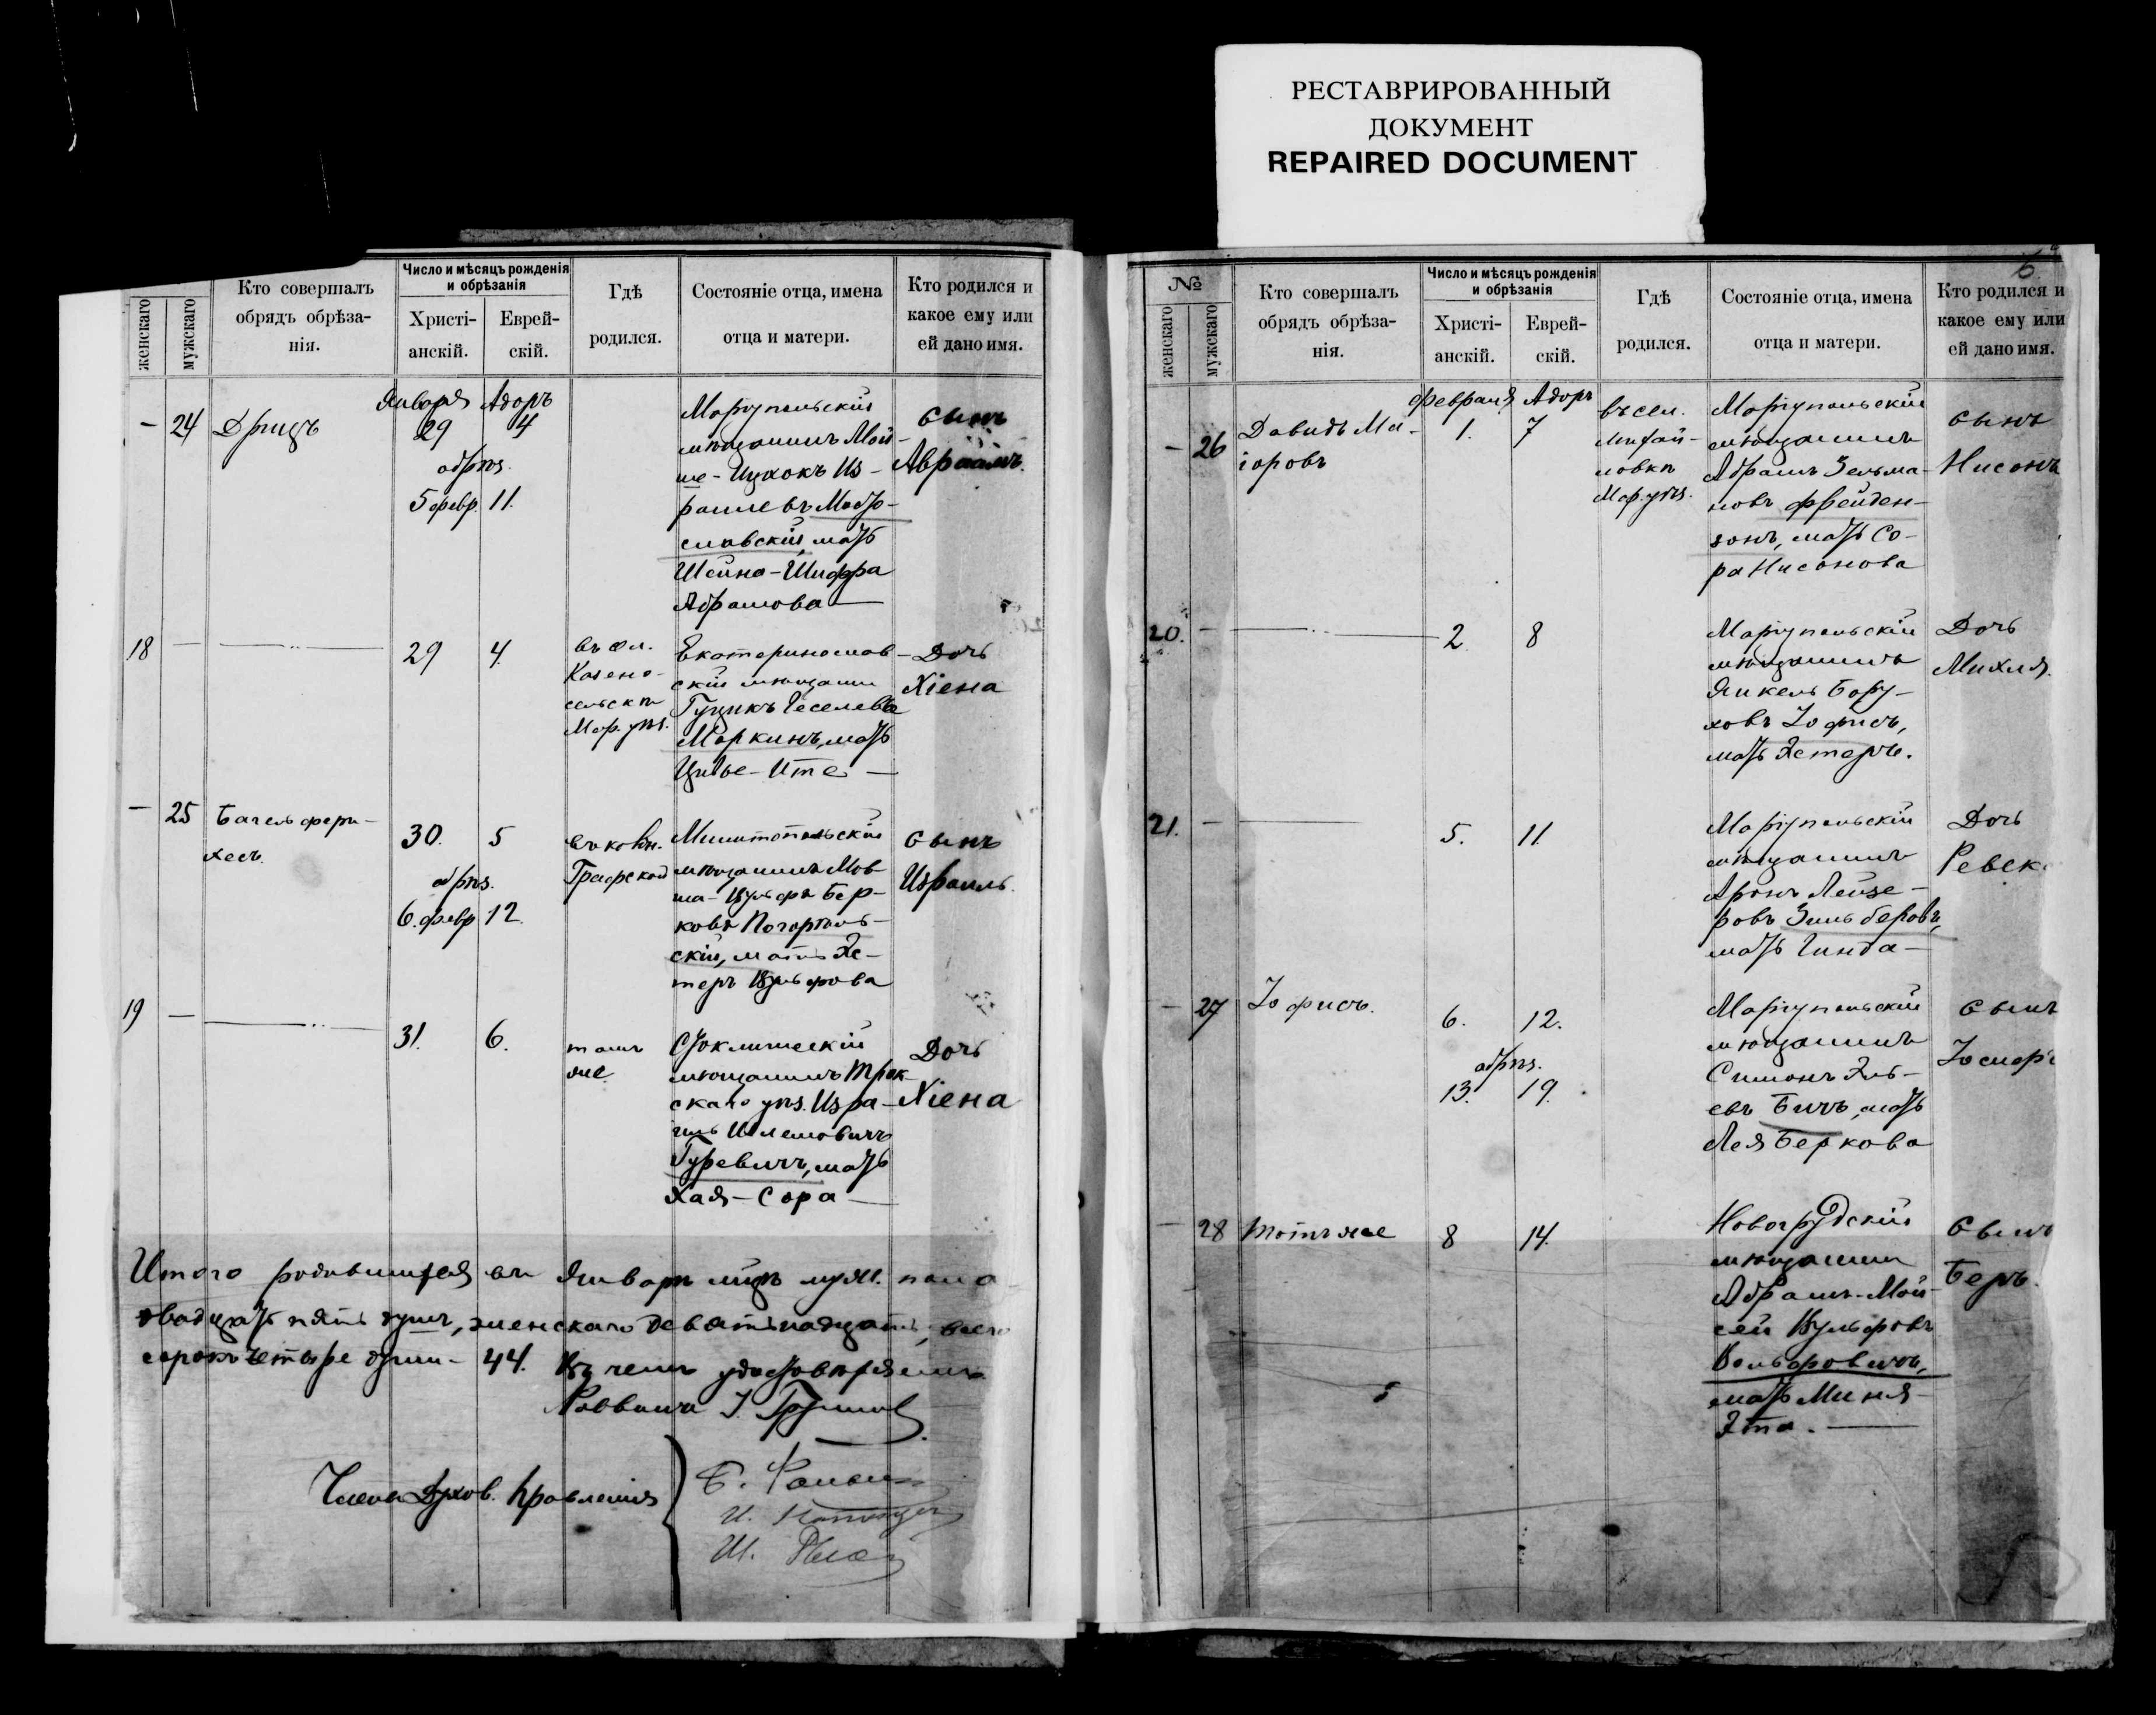 РЕСТАВРИРОВАННЫЙ
ДОКУМЕНТ
REPAIRED DOCUMENT
женскаго
мужскаго
Кто совершалъ
обрядъ обрѣза-
нія.
Число и мѣсяцъ рожденія
и обрѣзанія
Христі-
анскій.
Еврей-
скій.
Гдѣ
родился.
Состояніе отца, имена
отца и матери.
Кто родился и
какое ему или
ей дано имя.
— 24 Дрицъ
Января Адоръ
29 4
обрѣз.
5 февр. 11.
Маріупольскій
мѣщанинъ Мой-
ше-Ицхокъ Из-
раилевъ
славскій, мать
Шейна-Шифра
Абрамова —
сынъ
Авраамъ.
18 —
29 4.
въ сел.
Казено-
сельскѣ
Мар. уѣз.
Екатеринослав-
скій мѣщанин
Геселевъ
Маркинъ, мать
Цивье-Ите —
Дочь
Хіена
— 25
30. 5
обрѣз.
6. февр 12.
въ колон.
Графской
мѣщанинъ Мов-
ша-Вульфъ Бер-
ковъ
скій, мать Эс-
теръ Вульфова
сынъ
Израиль.
19 —
31. 6.
тамъ
же
мѣщанинъ Трок-
скаго уѣз. Изра-
иль Шлемовичъ
Гуревичъ, мать
Хая-Сора —
Дочь
Хіена
Итого родившихся въ Январѣ мѣцѣ муж. пола
двадцать пять душъ, женскаго девятнадцать, всего
сорокъ четыре души - 44. Въ чемъ удостовѣряемъ
Раввинъ
Члены Духов. Правленія
6
№
женскаго
мужскаго
Кто совершалъ
обрядъ обрѣза-
нія.
Число и мѣсяцъ рожденія
и обрѣзанія
Христі-
анскій.
Еврей-
скій.
Гдѣ
родился.
Состояніе отца, имена
отца и матери.
Кто родился и
какое ему или
ей дано имя.
— 26
Давидъ Ма-
іоровъ
Февраля Адоръ
1. 7
въ сел.
Михай-
ловкѣ
Мар. уѣз.
Маріупольскій
мѣщанинъ
Абрамъ Зельма-
новъ Фрейден-
зонъ, мать Со-
ра Нисонова
сынъ
Нисонъ
20. —
2 8
Маріупольскій
мѣщанинъ
Янкель Бору-
ховъ Іофисъ,
мать Эстеръ.
Дочь
Михля.
21. —
5. 11.
Маріупольскій
мѣщанинъ
Аронъ Лейзе-
ровъ Зильбербергъ,
мать Гинда —
Дочь
Ревек
— 27 Іофисъ.
6. 12.
обрѣз.
13. 19.
Маріупольскій
мѣщанинъ
Симонъ Эль-
евъ мать
Лея Беркова
сынъ
Іосифъ
— 28 Тотъ же
8 14.
Новогрудскій
мѣщанинъ
Абрамъ-Мой-
сей Вульфовъ
Вольфовичъ,
мать Миня-
Эта. —
сынъ
Беръ.